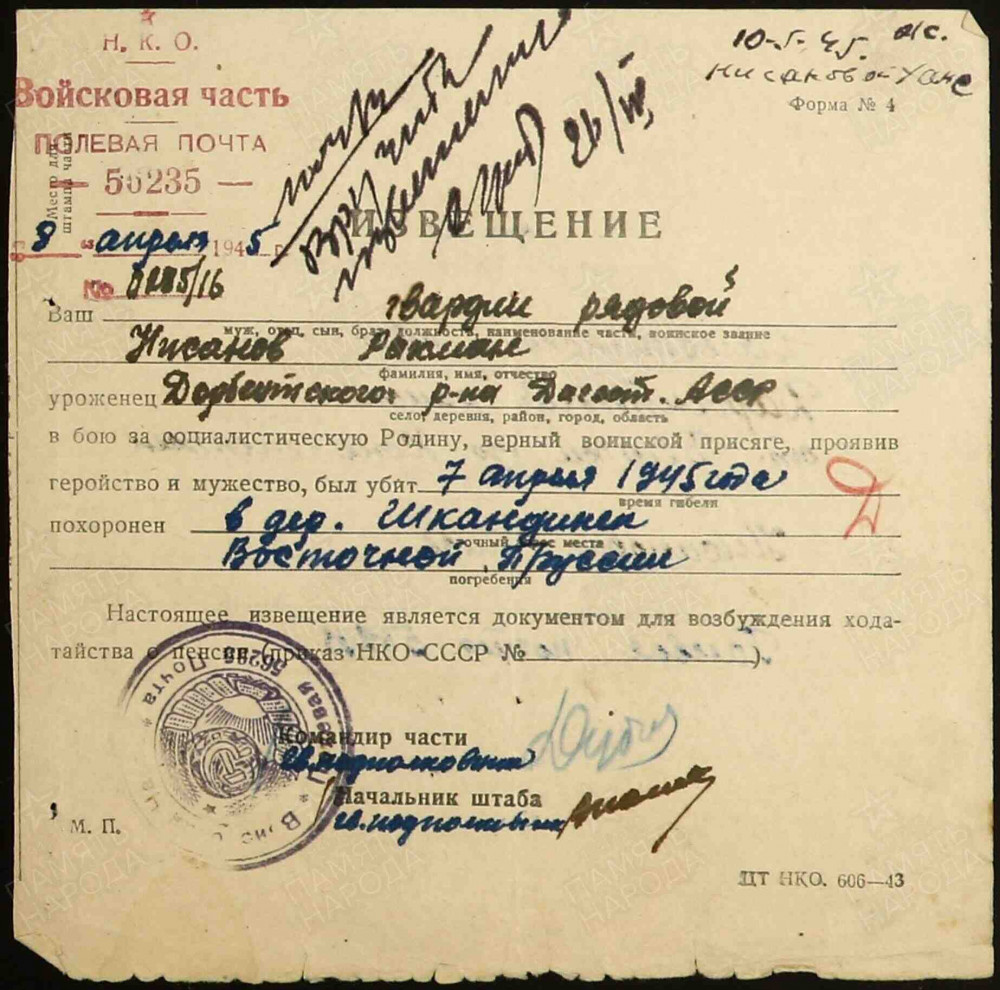 Н. К. О.
Войсковая часть
ПОЛЕВАЯ ПОЧТА
— 56235 —
Место для
штампа части
10-5-45.
Нисановой
Форма № 4
26/III
ИЗВЕЩЕНИЕ
8 " апреля 1945 г.
№ 0285/16
Ваш гвардии рядовой
муж, отец, сын, брат, должность, наименование части, воинское звание
Нисанов Рахман
фамилия, имя, отчество
уроженец Дербентского р-на Дагест. АССР
село, деревня, район, город, область
в бою за социалистическую Родину, верный воинской присяге, проявив
геройство и мужество, был убит 7 апреля 1945 года
время гибели
похоронен в дер. Шкандинен
точный адрес места
Восточной Пруссии
погребения
Настоящее извещение является документом для возбуждения хода-
тайства о пенсии (приказ НКО СССР № ).
Полевая Почта 56235
Командир части
гв. подполковник
Начальник штаба
гв. подполковник
М. П.
ЦТ НКО. 606—43
ПАМЯТЬ НАРОДА